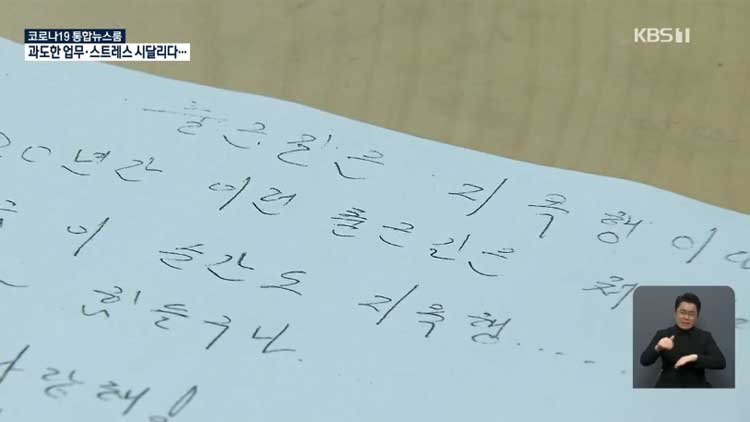 코로나19 통합뉴스룸
과도한 업무·스트레스 시달리다…
KBS1
출근길은 지옥행이
20년간 이런 출근길은 처
이 순간도 지옥행.....
힘들구나
사랑해!